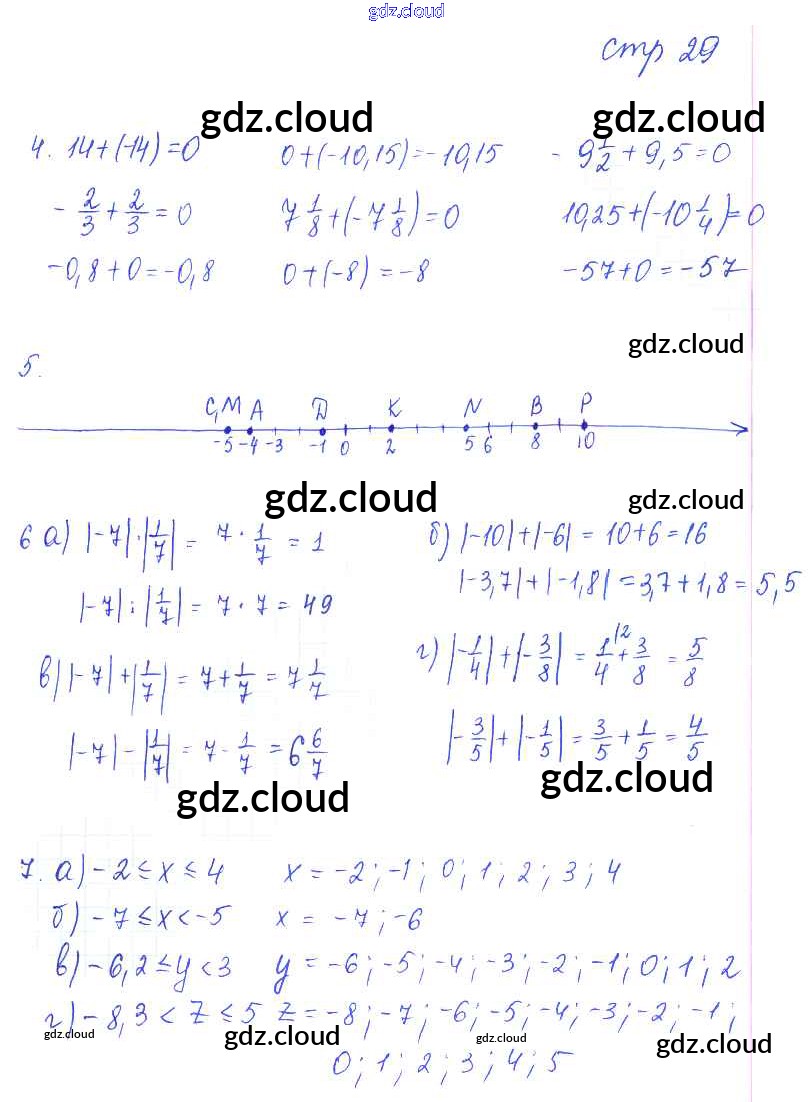 gdz.cloud
стр 29
gdz.cloud gdz.cloud
4. 14+(-14)=0 0+(-10,15)=-10,15 -9 1/2+9,5=0
-2/3+2/3=0 7 1/8+(-7 1/8)=0 10,25+(-10 1/4)=0
-0,8+0=-0,8 0+(-8)=-8 -57+0=-57
gdz.cloud
5.
C,M A D K N B P
-5 -4 -3 -1 0 2 5 6 8 10
gdz.cloud gdz.cloud
6 а) |-7|·|1/7| = 7·1/7 = 1 б) |-10|+|-6| = 10+6=16
|-7|:|1/7| = 7·7 = 49 |-3,7|+|-1,8|=3,7+1,8=5,5
в) |-7|+|1/7| = 7+1/7 = 7 1/7 г) |-1/4|+|-3/8| = 1/4 |2 + 3/8 = 5/8
|-7|-|1/7| = 7-1/7 = 6 6/7 |-3/5|+|-1/5| = 3/5+1/5 = 4/5
gdz.cloud gdz.cloud
7. а) -2≤x≤4 x = -2; -1; 0; 1; 2; 3; 4
б) -7≤x<-5 x = -7; -6
в) -6,2≤y<3 y = -6; -5; -4; -3; -2; -1; 0; 1; 2
г) -8,3<z≤5 z=-8; -7; -6; -5; -4; -3; -2; -1;
gdz.cloud gdz.cloud gdz.cloud gdz.cloud
0; 1; 2; 3; 4; 5